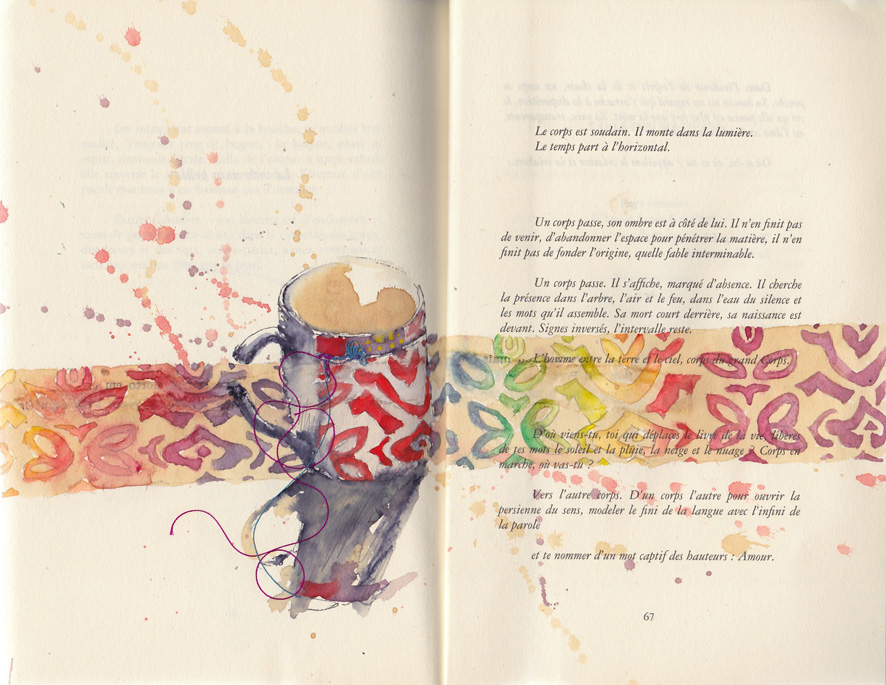 Le corps est soudain. Il monte dans la lumière.
Le temps part à l'horizontal.
Un corps passe, son ombre est à côté de lui. Il n'en finit pas
de venir, d'abandonner l'espace pour pénétrer la matière, il n'en
finit pas de fonder l'origine, quelle fable interminable.
Un corps passe. Il s'affiche, marqué d'absence. Il cherche
la présence dans l'arbre, l'air et le feu, dans l'eau du silence et
les mots qu'il assemble. Sa mort court derrière, sa naissance est
devant. Signes inversés, l'intervalle reste.
L'homme entre la terre et le ciel, corps du grand Corps.
D'où viens-tu, toi qui déplaces le livre de la vie, libères
de tes mots le soleil et la pluie, la neige et le nuage ? Corps en
marche, où vas-tu ?
Vers l'autre corps. D'un corps l'autre pour ouvrir la
persienne du sens, modeler le fini de la langue avec l'infini de
la parole
et te nommer d'un mot captif des hauteurs : Amour.
67